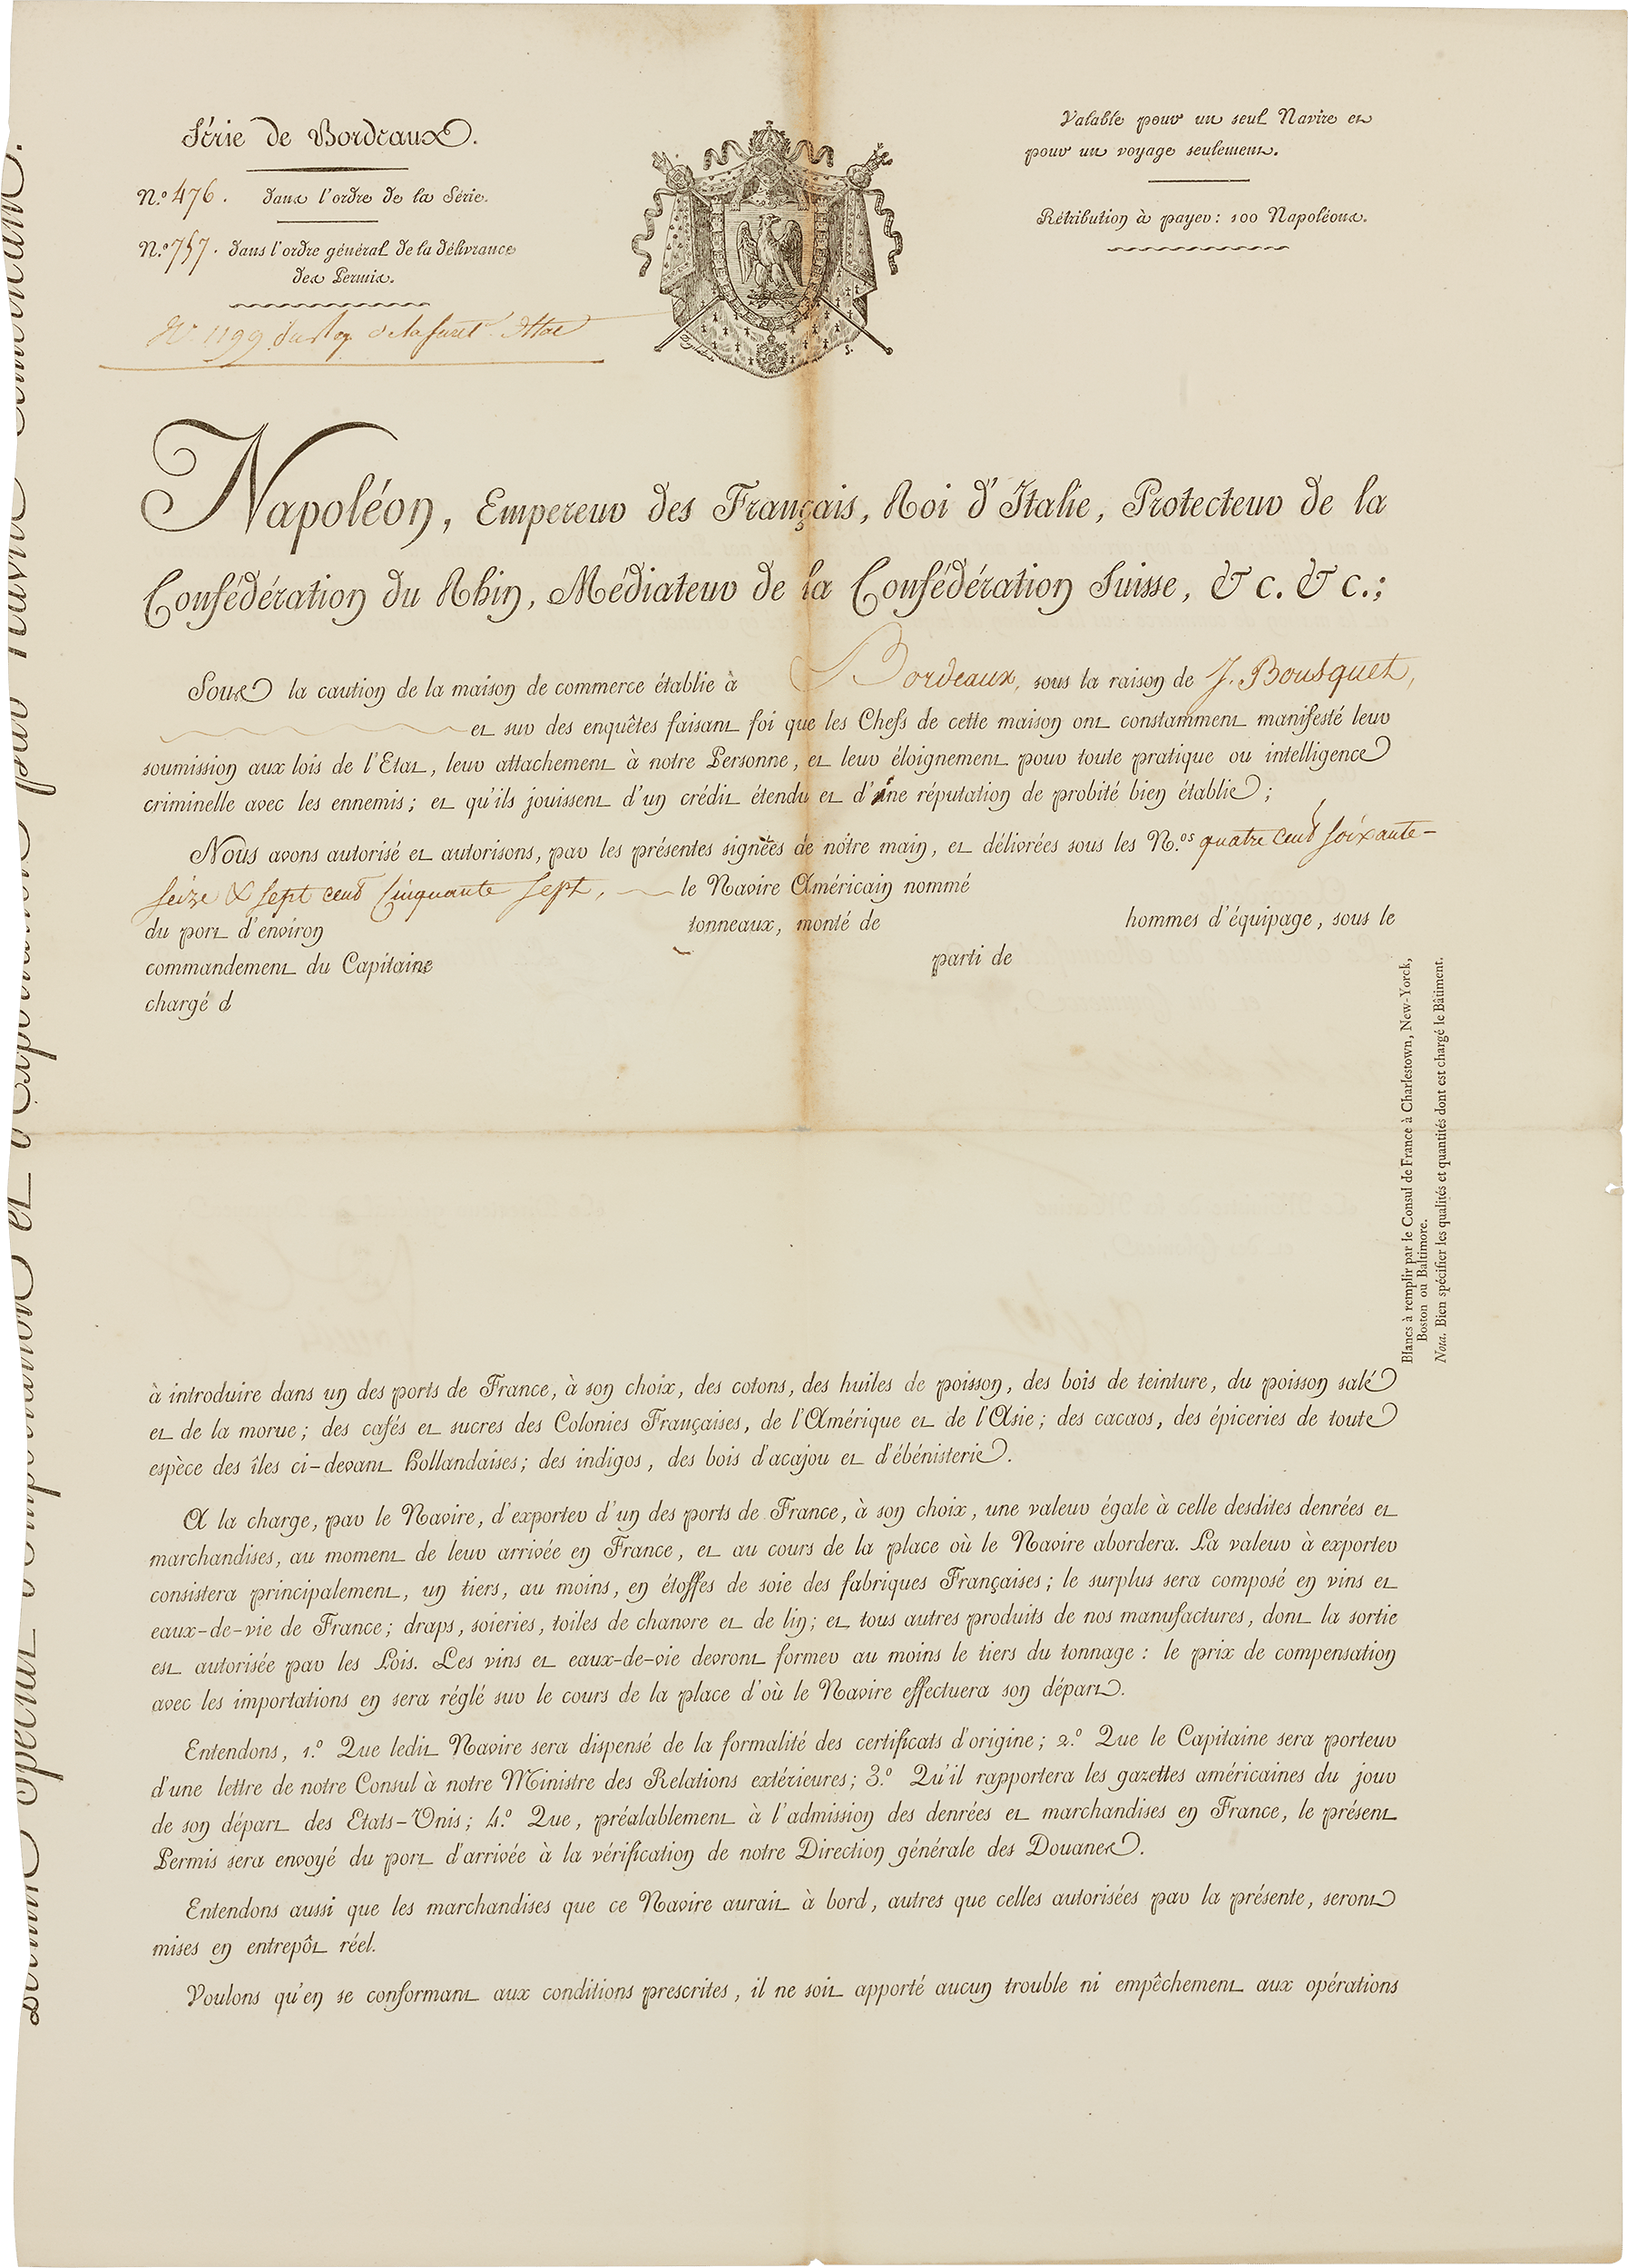 Série de Bordeaux.
N.º 476. dans l'ordre de la Série.
N.º 757. dans l'ordre général de la délivrance
des Permis.
Nº 1199 du
Valable pour un seul Navire et
pour un voyage seulement.
Rétribution à payer : 100 Napoléons.
Napoléon, Empereur des Français, Roi d'Italie, Protecteur de la
Confédération du Rhin, Médiateur de la Confédération Suisse, & c. & c.;
Sous la caution de la maison de commerce établie à Bordeaux, sous la raison de J. Bousquet,
et sur des enquêtes faisant foi que les Chefs de cette maison ont constamment manifesté leur
soumission aux lois de l'Etat, leur attachement à notre Personne, et leur éloignement pour toute pratique ou intelligence
criminelle avec les ennemis; et qu'ils jouissent d'un crédit étendu et d'une réputation de probité bien établie;
Nous avons autorisé et autorisons, par les présentes signées de notre main, et délivrées sous les N.os quatre cent soixante-
seize & sept cent cinquante sept, le Navire Américain nommé
du port d'environ tonneaux, monté de hommes d'équipage, sous le
commandement du Capitaine parti de
chargé d
Blancs à remplir par le Consul de France à Charlestown, New-Yorck,
Boston ou Baltimore.
Nota. Bien spécifier les qualités et quantités dont est chargé le Bâtiment.
à introduire dans un des ports de France, à son choix, des cotons, des huiles de poisson, des bois de teinture, du poisson salé
et de la morue; des cafés et sucres des Colonies Françaises, de l'Amérique et de l'Asie; des cacaos, des épiceries de toute
espèce des îles ci-devant Hollandaises; des indigos, des bois d'acajou et d'ébénisterie.
A la charge, par le Navire, d'exporter d'un des ports de France, à son choix, une valeur égale à celle desdites denrées et
marchandises, au moment de leur arrivée en France, et au cours de la place où le Navire abordera. La valeur à exporter
consistera principalement, un tiers, au moins, en étoffes de soie des fabriques Françaises; le surplus sera composé en vins et
eaux-de-vie de France; draps, soieries, toiles de chanvre et de lin; et tous autres produits de nos manufactures, dont la sortie
est autorisée par les Lois. Les vins et eaux-de-vie devront former au moins le tiers du tonnage : le prix de compensation
avec les importations en sera réglé sur le cours de la place d'où le Navire effectuera son départ.
Entendons, 1.º Que ledit Navire sera dispensé de la formalité des certificats d'origine; 2.º Que le Capitaine sera porteur
d'une lettre de notre Consul à notre Ministre des Relations extérieures; 3.º Qu'il rapportera les gazettes américaines du jour
de son départ des Etats-Unis; 4.º Que, préalablement à l'admission des denrées et marchandises en France, le présent
Permis sera envoyé du port d'arrivée à la vérification de notre Direction générale des Douanes.
Entendons aussi que les marchandises que ce Navire aurait à bord, autres que celles autorisées par la présente, seront
mises en entrepôt réel.
Voulons qu'en se conformant aux conditions prescrites, il ne soit apporté aucun trouble ni empêchement aux opérations